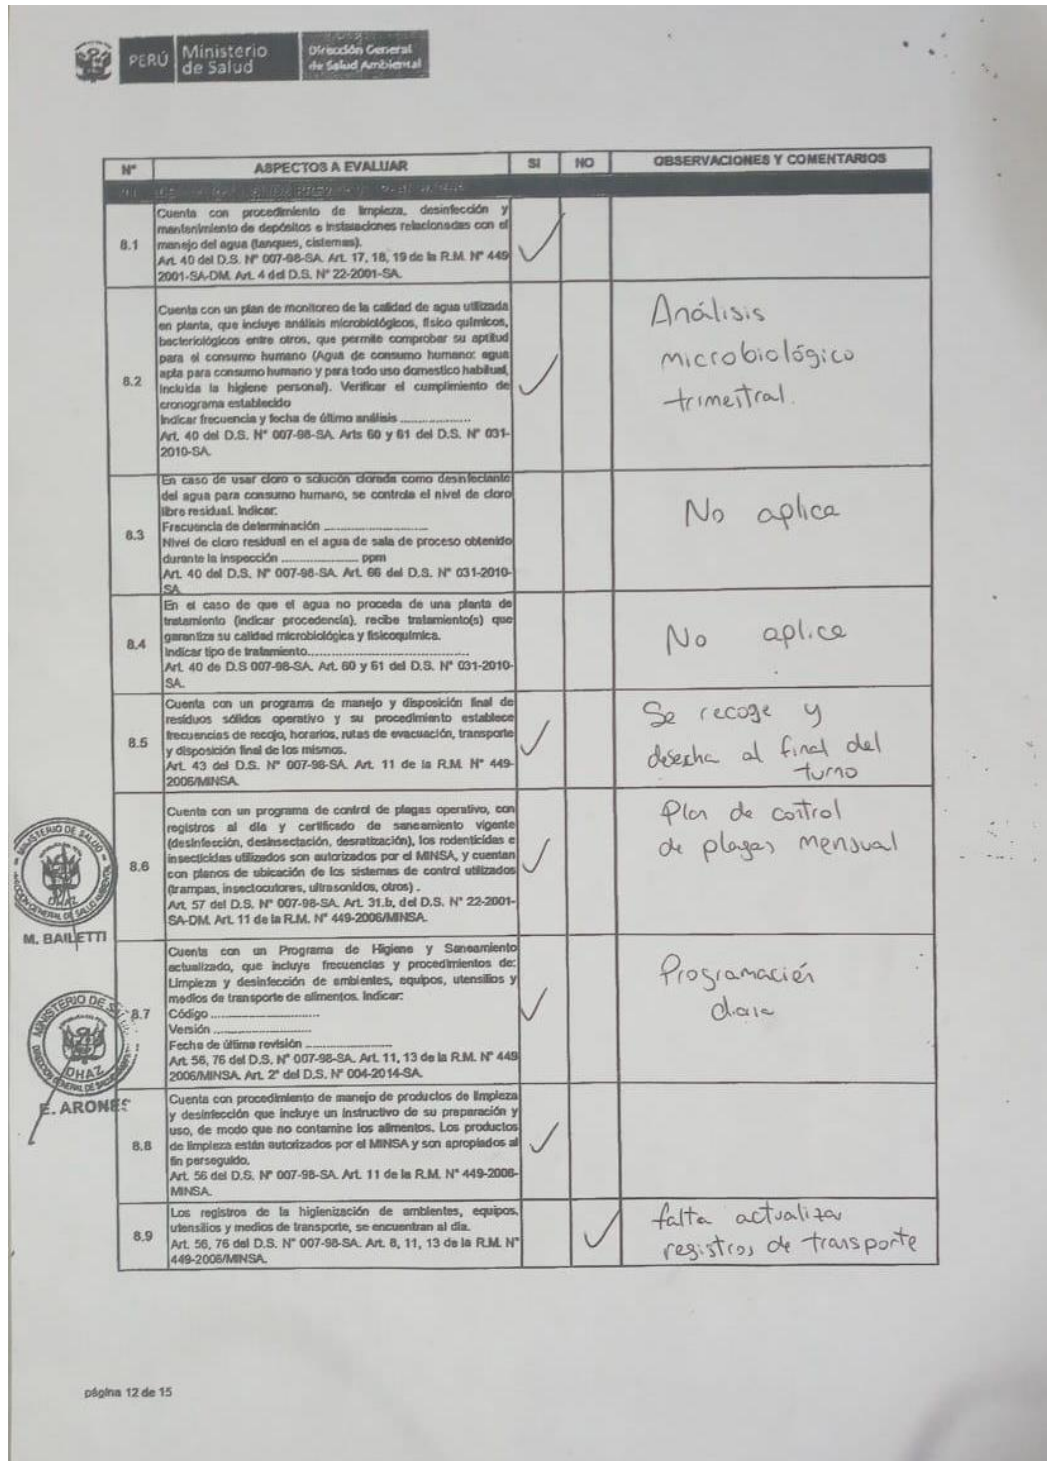 PERÚ
Ministerio
de Salud
Dirección General
de Salud Ambiental
N°
ASPECTOS A EVALUAR
SI
NO
OBSERVACIONES Y COMENTARIOS
8.1
Cuenta con procedimiento de limpieza, desinfección y
mantenimiento de depósitos e instalaciones relacionadas con el
manejo del agua (tanques, cisternas).
Art. 40 del D.S. N° 007-98-SA. Art. 17, 18, 19 de la R.M. N° 449
2001-SA-DM. Art. 4 del D.S. N° 22-2001-SA.
8.2
Cuenta con un plan de monitoreo de la calidad de agua utilizada
en planta, que incluye análisis microbiológicos, físico químicos,
bacteriológicos entre otros, que permite comprobar su aptitud
para el consumo humano (Agua de consumo humano: agua
apta para consumo humano y para todo uso domestico habitual,
incluida la higiene personal). Verificar el cumplimiento de
cronograma establecido
Indicar frecuencia y fecha de último análisis ..................
Art. 40 del D.S. N° 007-98-SA. Arts 60 y 61 del D.S. N° 031-
2010-SA.
Análisis
microbiológico
trimestral.
8.3
En caso de usar cloro o solución clorada como desinfectante
del agua para consumo humano, se controla el nivel de cloro
libre residual. Indicar:
Frecuencia de determinación ..........................
Nivel de cloro residual en el agua de sala de proceso obtenido
durante la inspección ................... ppm
Art. 40 del D.S. N° 007-98-SA. Art. 66 del D.S. N° 031-2010-
SA
No aplica
8.4
En el caso de que el agua no proceda de una planta de
tratamiento (indicar procedencia), recibe tratamiento(s) que
garantiza su calidad microbiológica y fisicoquímica.
Indicar tipo de tratamiento..........................................
Art. 40 de D.S 007-98-SA. Art. 60 y 61 del D.S. N° 031-2010-
SA.
No aplica
8.5
Cuenta con un programa de manejo y disposición final de
residuos sólidos operativo y su procedimiento establece
frecuencias de recojo, horarios, rutas de evacuación, transporte
y disposición final de los mismos.
Art. 43 del D.S. N° 007-98-SA. Art. 11 de la R.M. N° 449-
2006/MINSA.
Se recoge y
desecha al final del
turno
8.6
Cuenta con un programa de control de plagas operativo, con
registros al día y certificado de saneamiento vigente
(desinfección, desinsectación, desratización), los rodenticidas e
insecticidas utilizados son autorizados por el MINSA, y cuentan
con planos de ubicación de los sistemas de control utilizados
(trampas, insectocutores, ultrasonidos, otros) .
Art. 57 del D.S. N° 007-98-SA. Art. 31.b, del D.S. N° 22-2001-
SA-DM. Art. 11 de la R.M. N° 449-2006/MINSA.
Plan de control
de plagas mensual
MINISTERIO DE SALUD
DIRECCIÓN GENERAL DE SALUD AMBIENTAL
DHAZ
M. BAILETTI
8.7
Cuenta con un Programa de Higiene y Saneamiento
actualizado, que incluye frecuencias y procedimientos de:
Limpieza y desinfección de ambientes, equipos, utensilios y
medios de transporte de alimentos. Indicar:
Código ...........................
Versión ........................
Fecha de última revisión ......................
Art. 56, 76 del D.S. N° 007-98-SA. Art. 11, 13 de la R.M. N° 449
2006/MINSA. Art. 2° del D.S. N° 004-2014-SA.
Programación
diaria
MINISTERIO DE
DHAZ
E. ARONES
8.8
Cuenta con procedimiento de manejo de productos de limpieza
y desinfección que incluye un instructivo de su preparación y
uso, de modo que no contamine los alimentos. Los productos
de limpieza están autorizados por el MINSA y son apropiados al
fin perseguido.
Art. 56 del D.S. N° 007-98-SA. Art. 11 de la R.M. N° 449-2006-
MINSA.
8.9
Los registros de la higienización de ambientes, equipos,
utensilios y medios de transporte, se encuentran al día.
Art. 56, 76 del D.S. N° 007-98-SA. Art. 8, 11, 13 de la R.M. N°
449-2006/MINSA.
falta actualizar
registros de transporte
página 12 de 15